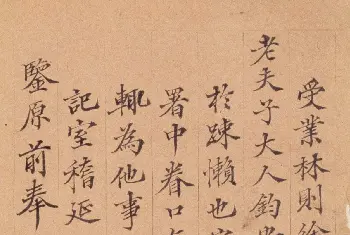 受業林則徐
老夫子大人鈞
於踈懶也
署中眷口
輒為他事
記室稽延
鑒原前奉